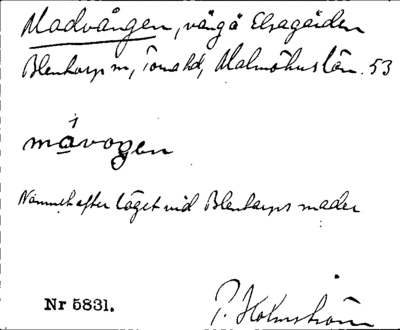 Madvången, väng å Elsagården
Blentarp sn, Torna hd, Malmöhus län. 53
måvogen
Namnet efter läget vid Blentarps mader
Nr 5831.
P. Holmström